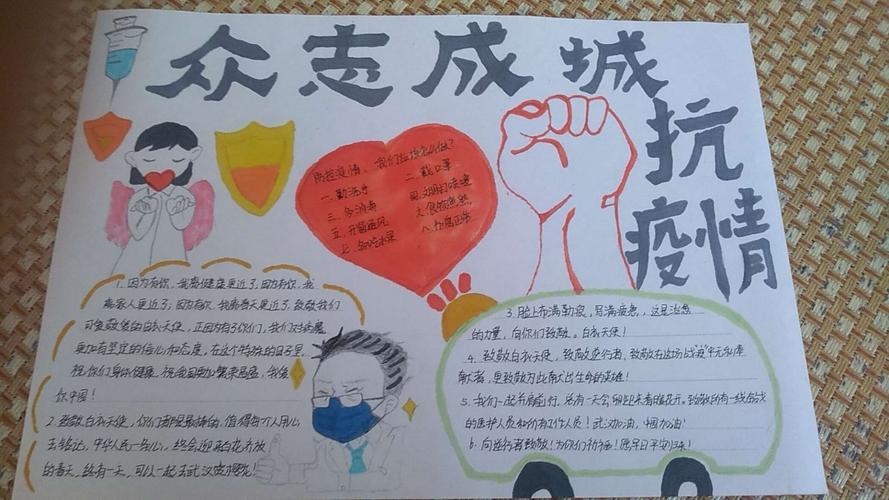 众志成城
抗
疫情
防控疫情，我们应该怎么做？
一.勤洗手 二.戴口罩
三.多消毒 四.文明打喷嚏
五.开窗通风
七.多吃水果 八.作息正常
1.因为有你，我离健康更近了，因为有你，我
离家人更近了；因为有你，我离春天更近了，致敬我们
可爱敬业的白衣天使，正因为有了你们，我们对病魔
更加有坚定的信心和态度。在这个特殊的日子里，
祝你们身体健康，祝全国更加繁荣昌盛，我爱
你中国！
2.致敬白衣天使，你们都是最棒的，值得每个人用心
去铭记，中华人民一条心，终会迎来百花齐放
的春天，终有一天，可以一起去武汉赏樱花！
3.脸上布满勒痕，写满疲惫，这是治愈
的力量，向你们致敬。白衣天使！
4.致敬白衣天使，致敬逆行者，致敬在这场战"疫"中无私奉
献者，更致敬为此献出生命的英雄！
5.我们一起并肩前行，总有一天会迎来春暖花开。致敬所有一线奋战
的医护人员和所有工作人员！武汉加油，中国加油！
6.向逆行者致敬！为你们祈福！愿早日平安归来！